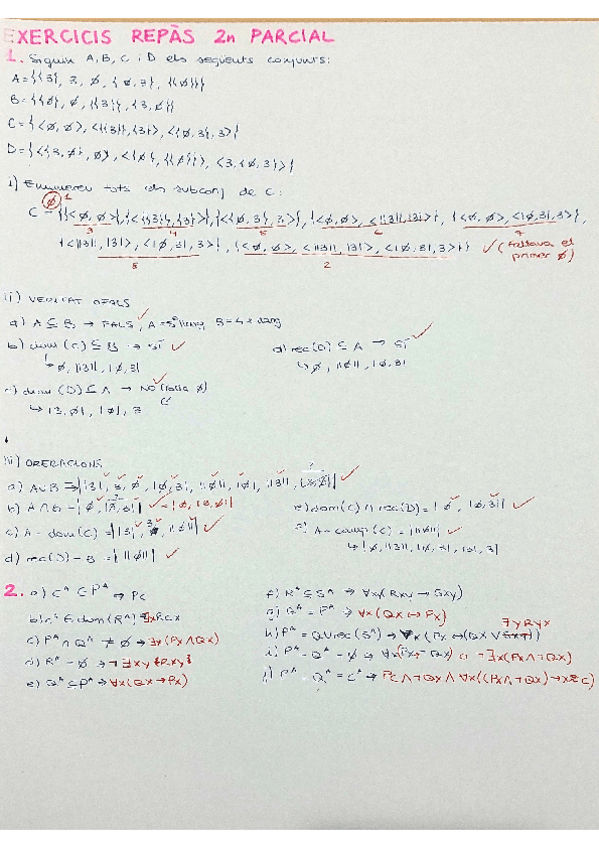 EXERCICIS REPÀS 2n PARCIAL
1. Siguin A, B, C i D els següents conjunts:
A = {{3}, 3, ∅, {∅, 3}, {{∅}}}
B = {{∅}, ∅, {{3}}, {3, ∅}}
C = {<∅, ∅>, <{{3}}, {3}>, <{∅, 3}, 3>}
D = {<{3, ∅}, ∅>, <{∅}, {{∅}}>, <3, {∅, 3}>}
i) Enumereu tots els subconj de C:
∅ 1
C = {{<∅, ∅>}, {<{{3}}, {3}>}, {<{∅, 3}, 3>}, {<∅, ∅>, <{{3}}, {3}>}, {<∅, ∅>, <{∅, 3}, 3>},
{<{{3}}, {3}>, <{∅, 3}, 3>}, {<∅, ∅>, <{{3}}, {3}>, <{∅, 3}, 3>}} ✓ (faltava el
primer ∅)
8 2
ii) VERITAT O FALS
a) A ⊆ B → FALS, A = 5 B = 4 ✓
b) dom(C) ⊆ B → SÍ ✓
↳ ∅, {{3}}, {∅, 3}
c) dom(D) ⊆ A → NO (falta ∅) ✓
↳ {3, ∅}, {∅}, 3
d) rec(D) ⊆ A → SÍ ✓
↳ ∅, {{∅}}, {∅, 3}
iii) OPERACIONS
a) A∪B = {{3}, 3, ∅, {∅, 3}, {{∅}}, {∅}, {{3}}, {3, ∅}} ✓
b) A ∩ B = {∅, {∅, 3}} ✓ = {∅, {∅, 3}}
c) A - dom(C) = {{3}, 3, {{∅}}} ✓
d) rec(D) - B = {{{∅}}} ✓
e) dom(C) ∩ rec(D) = {∅, {∅, 3}} ✓
A - camp(C) = {{{∅}}} ✓
↳ {∅, {{3}}, {∅, 3}, {3}, 3}
2. a) Cᴬ ∈ Pᴬ → Pc
b) ∈ dom(Rᴬ) → ∃xRcx
c) Pᴬ ∩ Qᴬ ≠ ∅ → ∃x(Px∧Qx)
d) Rᴬ = ∅ → ¬∃xy(Rxy)
e) Qᴬ ⊆ Pᴬ → ∀x(Qx→Px)
f) Rᴬ ⊆ Sᴬ → ∀xy(Rxy → Sxy)
g) Qᴬ = Pᴬ → ∀x(Qx ↔ Px)
∃yRyx
h) Pᴬ = Q∪rec(Sᴬ) → ∀x(Px ↔ (Qx ∨
i) Pᴬ - Qᴬ = ∅ → ∀x(Px → Qx) o ¬∃x(Px∧¬Qx)
j) Pᴬ - Qᴬ = Cᴬ → Pc∧¬Qx∧∀x((Px∧¬Qx)→x≈c)